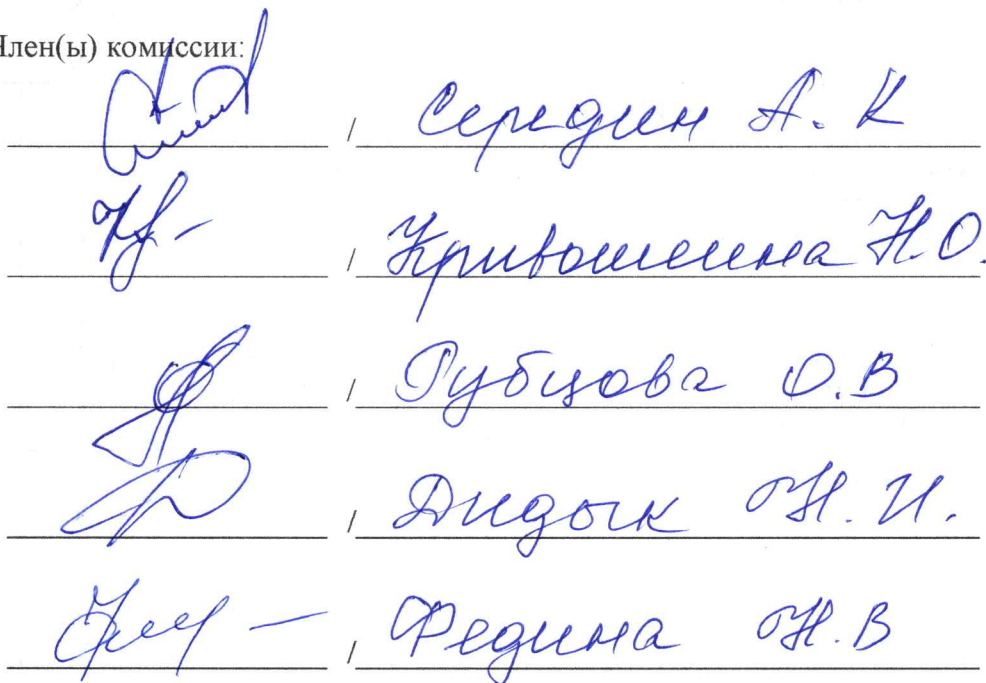 Член(ы) комиссии:
/ Середин А. К
/ Кривошеина Н.О.
/ Рубцова О.В
/ Дидык Н. И.
/ Федина Н.В